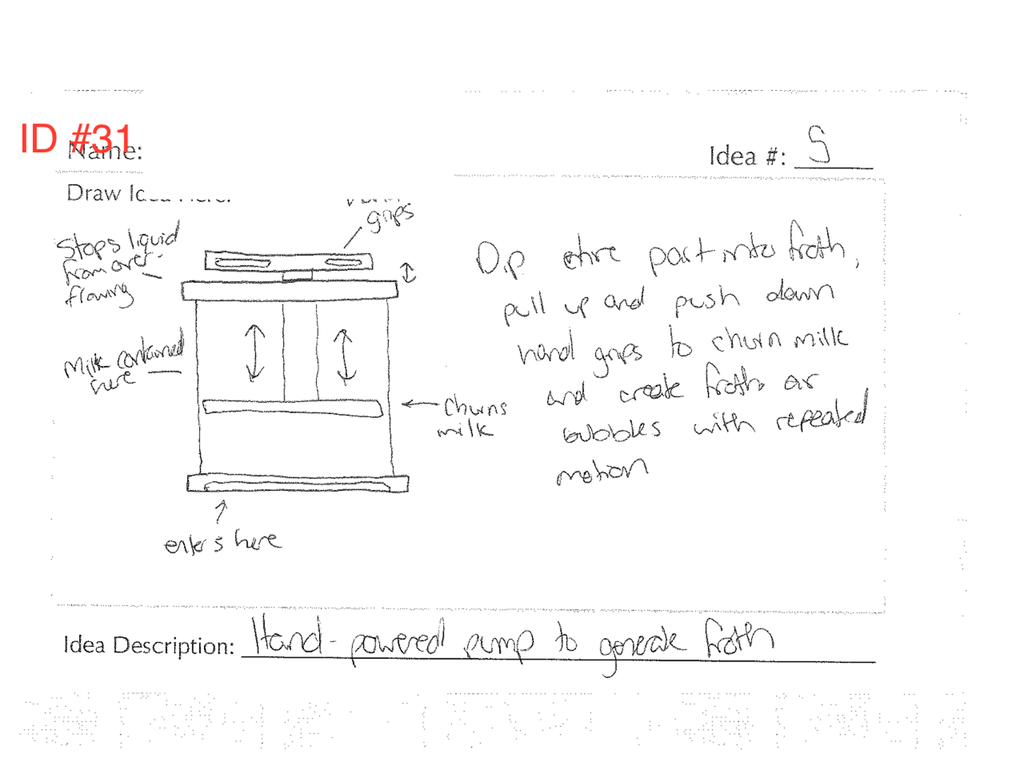 ID #31
Name:
Idea #: 5
grips
Stops liquid
from over-
flowing
Milk contained
here
Churns
milk
enters here
Dip entire part into froth,
pull up and push down
hand grips to churn milk
and create froth or
bubbles with repeated
motion
Idea Description: Hand-powered pump to generate froth